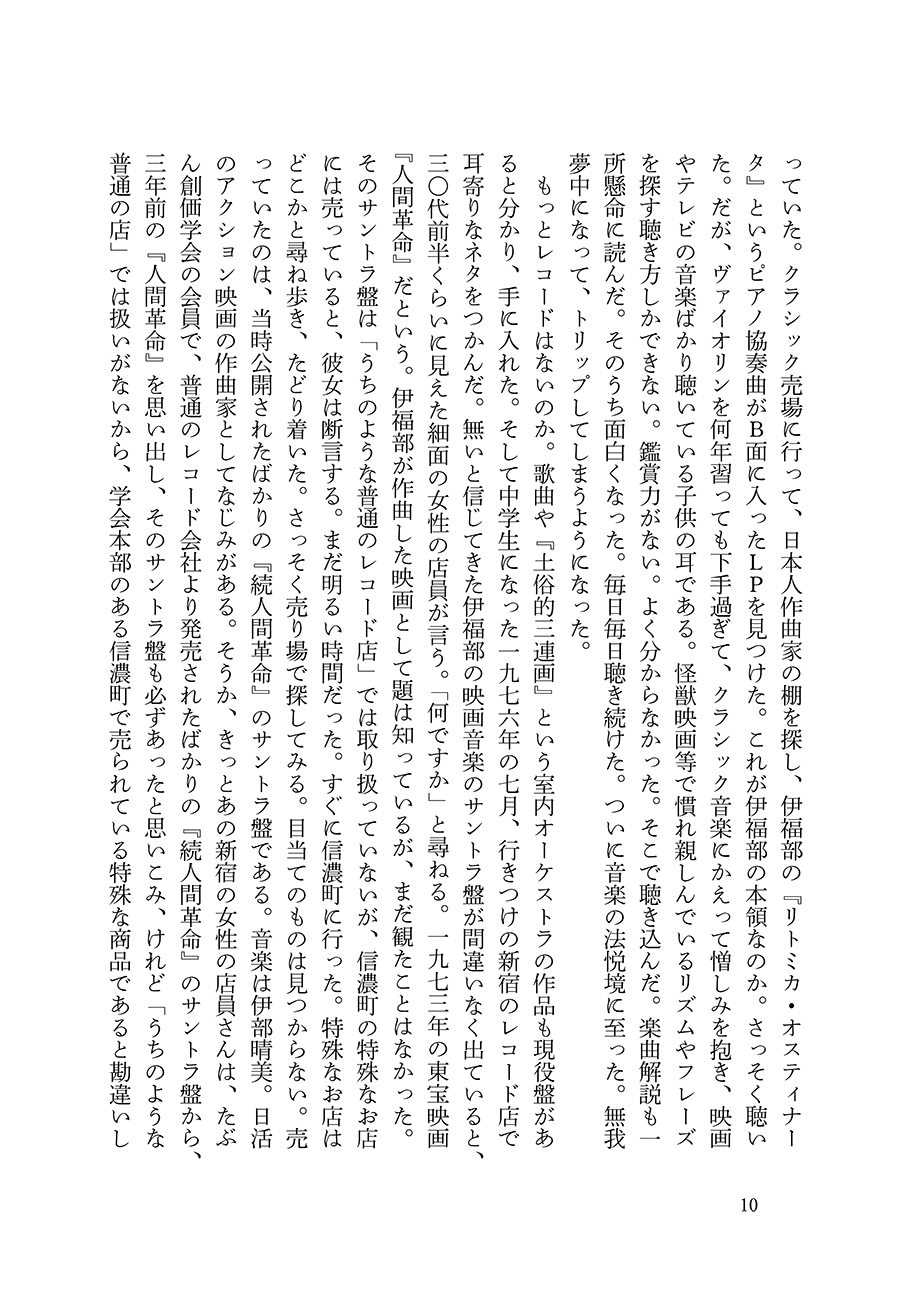 っていた。クラシック売場に行って、日本人作曲家の棚を探し、伊福部の『リトミカ・オスティナー
タ』というピアノ協奏曲がＢ面に入ったＬＰを見つけた。これが伊福部の本領なのか。さっそく聴い
た。だが、ヴァイオリンを何年習っても下手過ぎて、クラシック音楽にかえって憎しみを抱き、映画
やテレビの音楽ばかり聴いている子供の耳である。怪獣映画等で慣れ親しんでいるリズムやフレーズ
を探す聴き方しかできない。鑑賞力がない。よく分からなかった。そこで聴き込んだ。楽曲解説も一
所懸命に読んだ。そのうち面白くなった。毎日毎日聴き続けた。ついに音楽の法悦境に至った。無我
夢中になって、トリップしてしまうようになった。
　もっとレコードはないのか。歌曲や『土俗的三連画』という室内オーケストラの作品も現役盤があ
ると分かり、手に入れた。そして中学生になった一九七六年の七月、行きつけの新宿のレコード店で
耳寄りなネタをつかんだ。無いと信じてきた伊福部の映画音楽のサントラ盤が間違いなく出ていると、
三〇代前半くらいに見えた細面の女性の店員が言う。「何ですか」と尋ねる。一九七三年の東宝映画
『人間革命』だという。伊福部が作曲した映画として題は知っているが、まだ観たことはなかった。
そのサントラ盤は「うちのような普通のレコード店」では取り扱っていないが、信濃町の特殊なお店
には売っていると、彼女は断言する。まだ明るい時間だった。すぐに信濃町に行った。特殊なお店は
どこかと尋ね歩き、たどり着いた。さっそく売り場で探してみる。目当てのものは見つからない。売
っていたのは、当時公開されたばかりの『続人間革命』のサントラ盤である。音楽は伊部晴美。日活
のアクション映画の作曲家としてなじみがある。そうか、きっとあの新宿の女性の店員さんは、たぶ
ん創価学会の会員で、普通のレコード会社より発売されたばかりの『続人間革命』のサントラ盤から、
三年前の『人間革命』を思い出し、そのサントラ盤も必ずあったと思いこみ、けれど「うちのような
普通の店」では扱いがないから、学会本部のある信濃町で売られている特殊な商品であると勘違いし
10